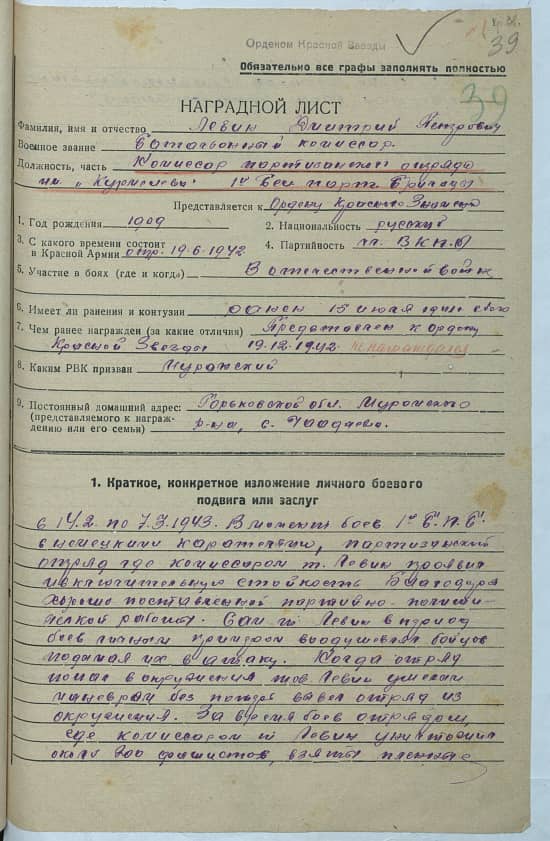 39
Орденом Красной Звезды
Обязательно все графы заполнять полностью
39
НАГРАДНОЙ ЛИСТ
Фамилия, имя и отчество Левин Дмитрий Петрович
Военное звание Батальонный комиссар.
Должность, часть Комиссар партизанского отряда
им. "Курмелева" 1й Бел парт. Бригады
Представляется к Ордену Красного Знамени
1. Год рождения 1909 2. Национальность русский
3. С какого времени состоит в Красной Армии 19.6.1942 4. Партийность чл. ВКП(б)
5. Участие в боях (где и когда) В отечественной войне
6. Имеет ли ранения и контузии ранен 15 июля 1941
7. Чем ранее награжден (за какие отличия) Представлен к ордену
Красной Звезды 19.12.1942 не награждался
8. Каким РВК призван Муромский
9. Постоянный домашний адрес: Горьковской обл. Муромского
(представляемого к награждению или его семьи) р-на, с. Чаадаево.
1. Краткое, конкретное изложение личного боевого
подвига или заслуг
с 14.2. по 7.3.1943. В момент боев 1й Б.П.Б.
с немецкими карателями, партизанский
отряд где комиссаром т. Левин проявил
исключительную стойкость благодаря
хорошо поставленной партийно-полити-
ческой работы. Сам т. Левин в период
боев личным примером воодушевлял бойцов
поднимая их в атаку. Когда отряд
попал в окружения тов. Левин умелым
маневром без потерь вывел отряд из
окружения. За время боев отрядом,
где комиссаром т Левин уничтожил
около 200 фашистов, взяты пленные